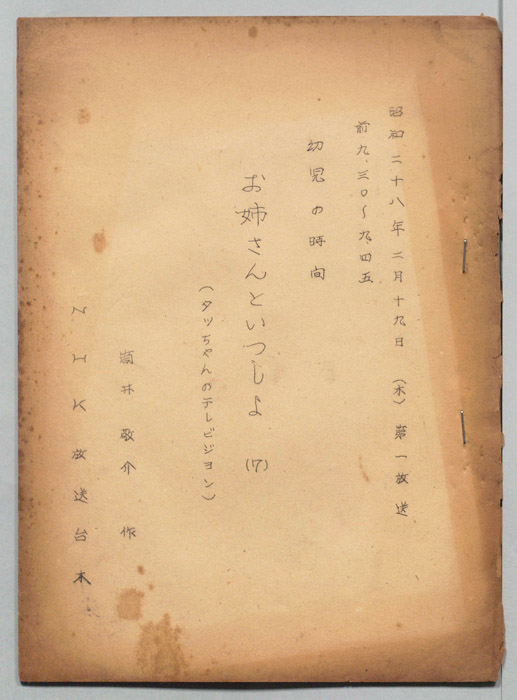 昭和二十八年二月十九日（木）第一放送
前九.三〇〜九.四五
幼児の時間
お姉さんといつしよ（7）
（タツちやんのテレビジヨン）
筒井敬介 作
NHK放送台本